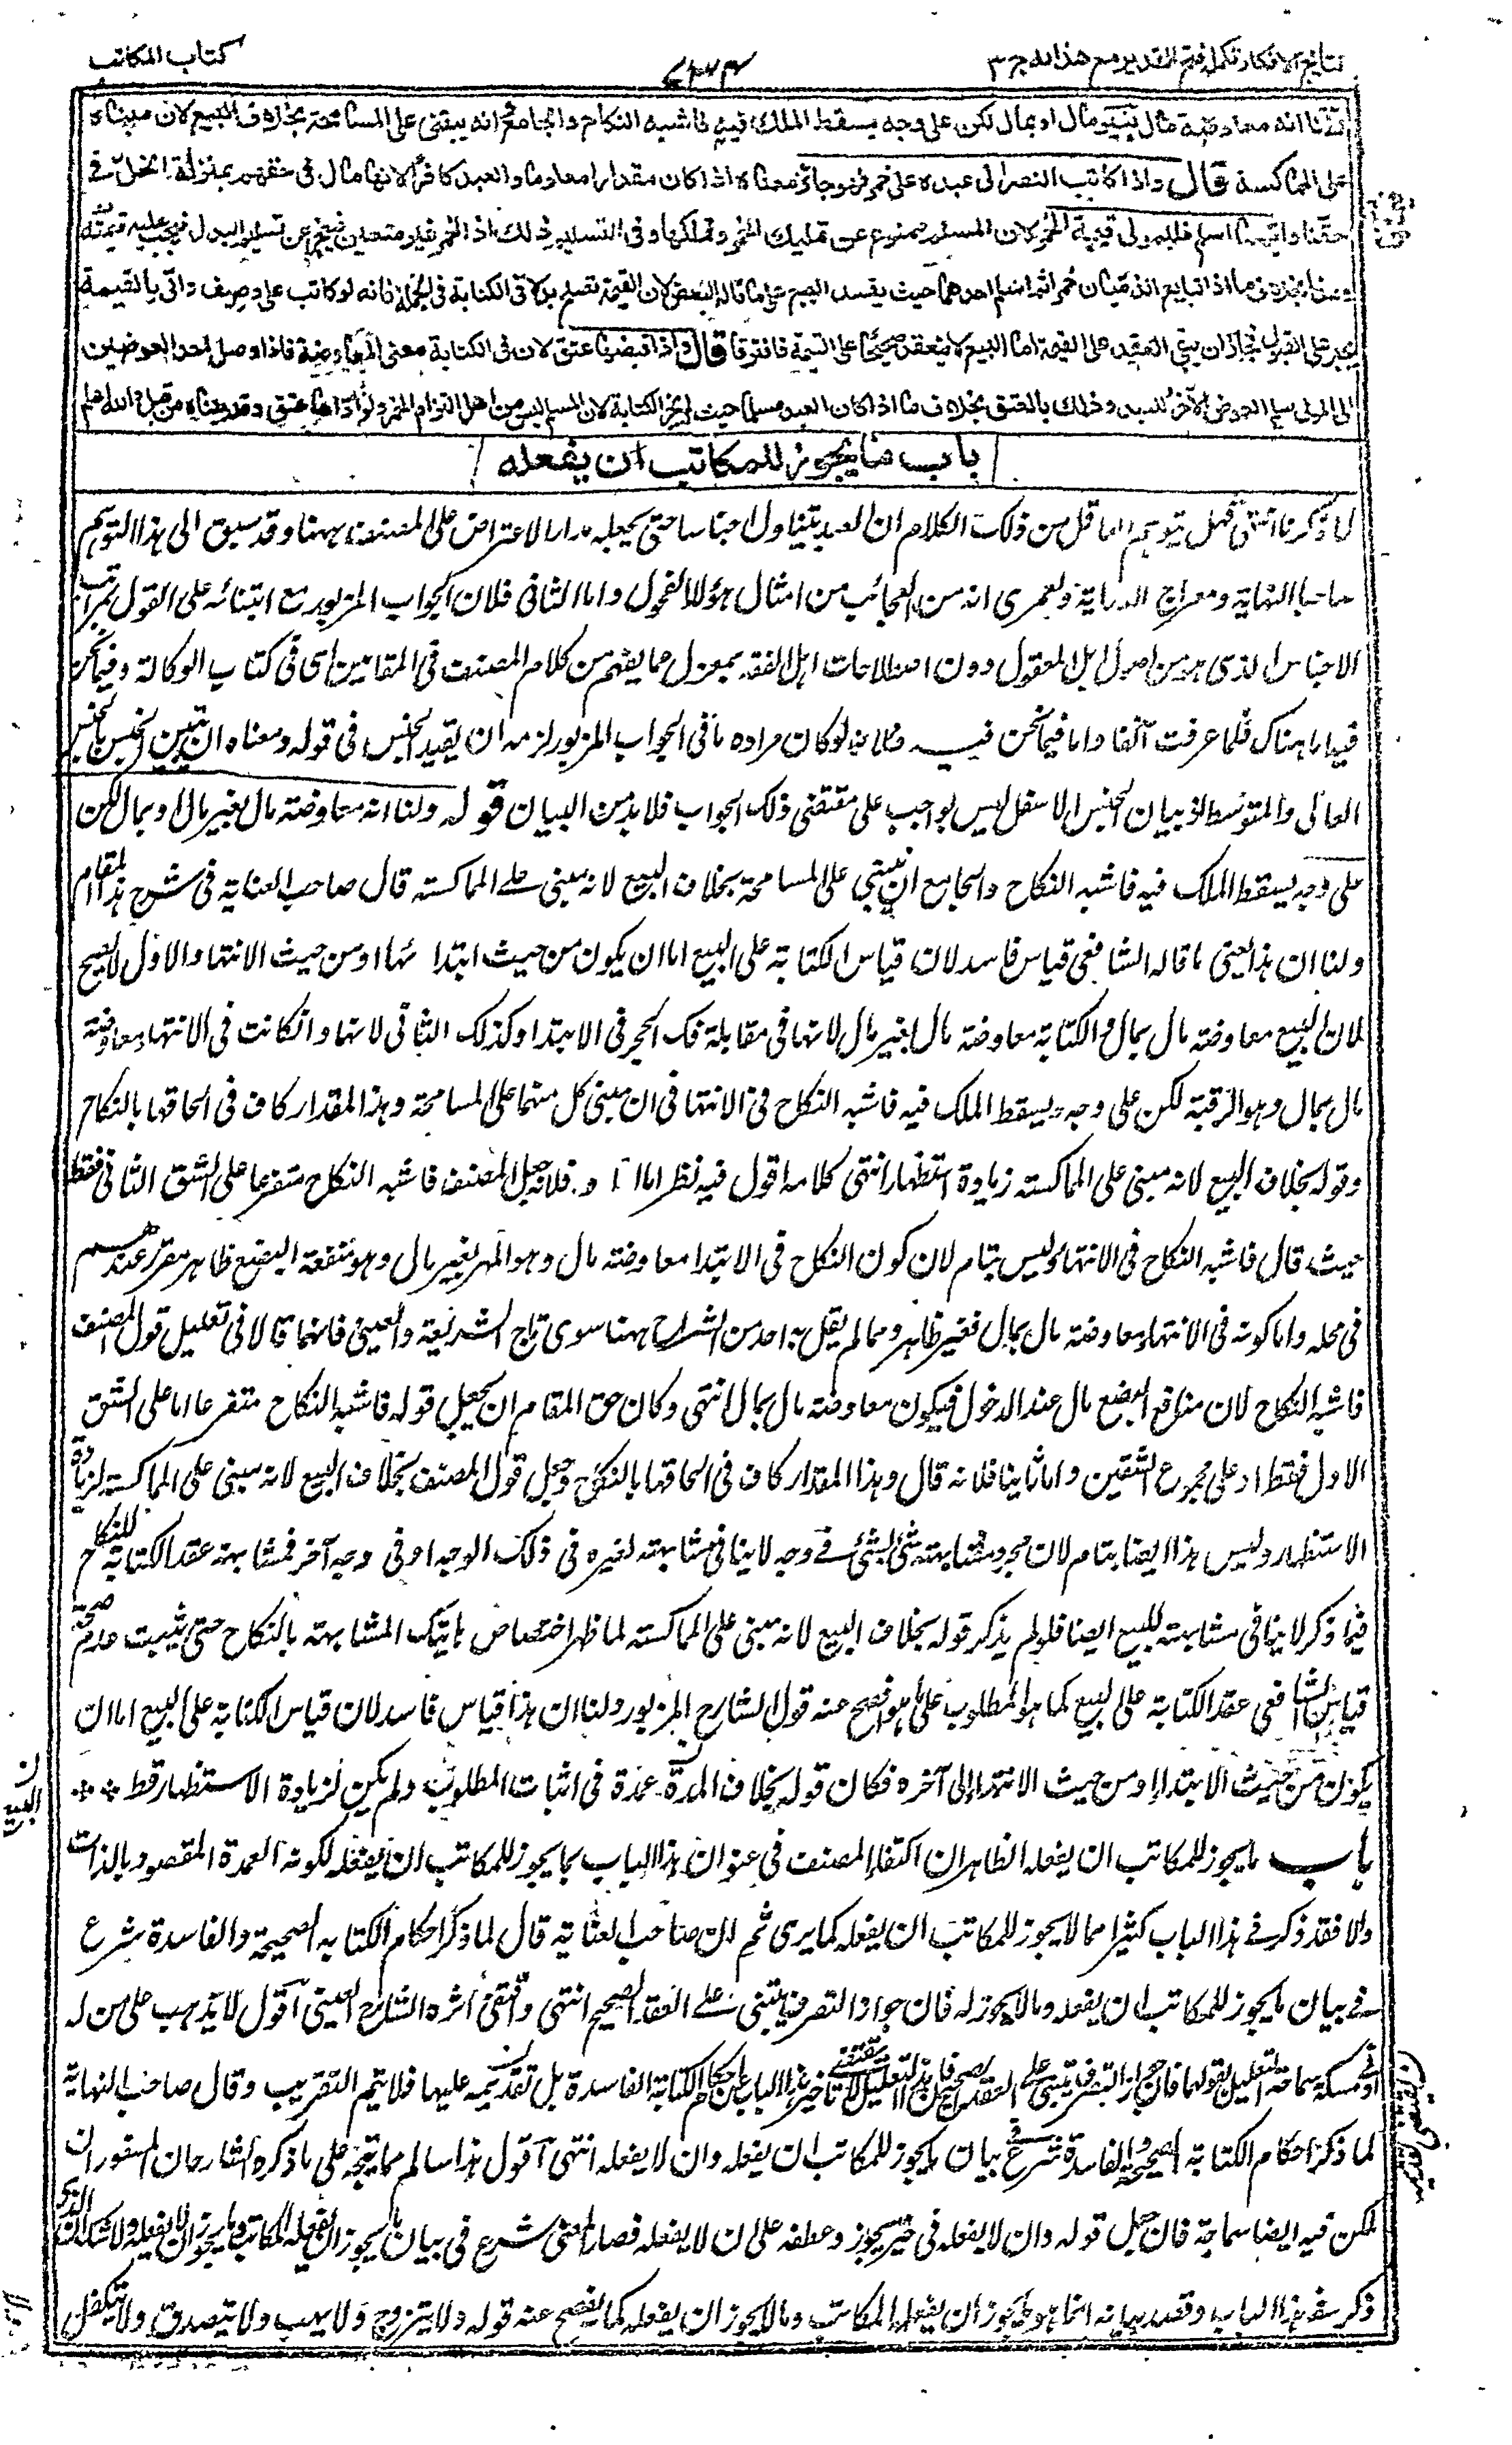 نتائج الافكار تكملة فتح القدير مع هدايه ج ٣
كتاب المكاتب
ولنا انه معاوضة مال بغير مال او بمال لكن على وجه يسقط الملك فيه فاشبه النكاح والجامع انه يبتنى على المسامحة بخلاف البيع لان مبناه
على المماكسة قال واذا كاتب النصرانى عبده على خمر فهو جائز معناه اذا كان مقدارا معلوما والعبد كافرا لانها مال فى حقهم بمنزلة الخل فى
حقنا وايهما اسلم فللمولى قيمة الخمر لان المسلم ممنوع عن تمليك الخمر وتملكها وفى التسليم ذلك اذ الخمر غير متعين فيعجز عن تسليم البدل فيجب عليه قيمته
وهذا بخلاف ما اذا تبايع الذميان خمرا ثم اسلم احدهما حيث يفسد البيع على ما قاله البعض لان القيمة تصلح بدلا فى الكتابة فى الجملة فانه لو كاتب على وصيف واتى بالقيمة
يجبر على القبول فجاز ان يبقى العقد على القيمة اما البيع لا ينعقد صحيحا على القيمة فافترقا قال واذا قبضها عتق لان فى الكتابة معنى المعاوضة فاذا وصل احد العوضين
الى المولى سلم العوض الآخر للعبد وذلك بالعتق بخلاف ما اذا كان العبد مسلما حيث لم يجز الكتابة لان المسلم ليس من اهل التزام الخمر ولو اداها عتق وقد بيناه من قبل والله اعلم
باب ما يجوز للمكاتب ان يفعله
لما ذكرنا انتهى فهل يتوهم العاقل من ذلك الكلام ان العبد يتناول اجناسا حتى يجعله مدار الاعتراض على المصنف ههنا وقد سبق الى هذا التوهم
صاحبا النهاية ومعراج الدراية ولعمرى انه من العجائب من امثال هؤلاء الفحول واما الثانى فلان الجواب المزبور مع ابتنائه على القول بمراتب
الاجناس الذى هو من اصول اهل المعقول دون اصطلاحات اهل الفقه بمعزل مما يفهم من كلام المصنف فى المقامين اى فى كتاب الوكالة وفيما نحن
فيه اما هناك فلما عرفت آنفا واما فيما نحن فيه فلانه لو كان مراده ما فى الجواب المزبور لزمه ان يقيد الجنس فى قوله ومعناه ان يبين الجنس بالجنس
العالى والمتوسط اذ بيان الجنس الاسفل ليس بواجب على مقتضى ذلك الجواب فلا بد من البيان قوله ولنا انه معاوضة مال بغير مال او بمال لكن
على وجه يسقط الملك فيه فاشبه النكاح والجامع انه يبتنى على المسامحة بخلاف البيع لانه مبنى على المماكسة قال صاحب العناية فى شرح هذا المقام
ولنا ان هذا يعنى ما قاله الشافعى قياس فاسد لان قياس الكتابة على البيع اما ان يكون من حيث ابتدائها او من حيث الانتهاء والاول لا يصح
لان البيع معاوضة مال بمال والكتابة معاوضة مال بغير مال لانها فى مقابلة فك الحجر فى الابتداء وكذلك الثانى لانها وان كانت فى الانتهاء معاوضة
مال بمال وهو الرقبة لكن على وجه يسقط الملك فيه فاشبه النكاح فى الانتهاء فى ان مبنى كل منهما على المسامحة وهذا المقدار كاف فى الحاقها بالنكاح
وقوله بخلاف البيع لانه مبنى على المماكسة زيادة استظهار انتهى كلامه اقول فيه نظر اما اولا فلانه جعل المصنف فاشبه النكاح متفرعا على الشق الثانى فقط
حيث قال فاشبه النكاح فى الانتهاء وليس بتام لان كون النكاح فى الابتداء معاوضة مال وهو المهر بغير مال وهو منفعة البضع ظاهر مقرر عندهم
فى محله واما كونه فى الانتهاء معاوضة مال بمال فغير ظاهر ومما لم يقل به احد من الشراح ههنا سوى تاج الشريعة والعينى فانهما قالا فى تعليل قول المصنف
فاشبه النكاح لان منافع البضع مال عند الدخول فيكون معاوضة مال بمال انتهى وكان حق المقام ان يجعل قوله فاشبه النكاح متفرعا اما على الشق
الاول فقط او على مجموع الشقين واما ثانيا فلانه قال وهذا المقدار كاف فى الحاقها بالنكاح وجعل قول المصنف بخلاف البيع لانه مبنى على المماكسة لزيادة
الاستظهار وليس هذا ايضا بتام لان مجرد مشابهة شئ لشئ فى وجه لا ينافى مشابهته لغيره فى ذلك الوجه او فى وجه آخر فمشابهة عقد الكتابة للنكاح
فيما ذكر لا ينافى مشابهته للبيع ايضا فلو لم يذكر قوله بخلاف البيع لانه مبنى على المماكسة لما ظهر اختصاص تلك المشابهة بالنكاح حتى يثبت عدم صحة
قياس الشافعى عقد الكتابة على البيع كما هو المطلوب على ما هو افصح عنه قول الشارح المزبور ولنا ان هذا قياس فاسد لان قياس الكتابة على البيع اما ان
يكون من حيث الابتداء او من حيث الانتهاء الى آخره فكان قوله بخلاف البيع عمدة فى اثبات المطلوب ولم يكن لزيادة الاستظهار قط **
باب ما يجوز للمكاتب ان يفعله الظاهر ان اكتفاء المصنف فى عنوان هذا الباب بما يجوز للمكاتب ان يفعله لكونه العمدة المقصود بالذات
والا فقد ذكر فى هذا الباب كثيرا مما لا يجوز للمكاتب ان يفعله كما يرى ثم ان صاحب العناية قال لما ذكر احكام الكتابة الصحيحة والفاسدة شرع
فى بيان ما يجوز للمكاتب ان يفعله وما لا يجوز له فان جواز التصرف يبتنى على العقد الصحيح انتهى واقتفى اثره الشارح العينى اقول لا يذهب على من له
ادنى مسكة سماجة التعليل بقولهما فان جواز التصرف يبتنى على العقد الصحيح فان هذا التعليل لا يقتضى تاخير هذا الباب عن احكام الكتابة الفاسدة بل تقديمه عليها فلا يتم التقريب وقال صاحب النهاية
لما ذكر احكام الكتابة الصحيحة والفاسدة شرع فى بيان ما يجوز للمكاتب ان يفعله وان لا يفعله انتهى اقول هذا سالم مما يتجه على ما ذكره الشارحان المسفوران
لكن فيه ايضا سماجة فان جعل قوله وان لا يفعله فى حيز يجوز وعطفه على ان لا يفعله فصار المعنى شرع فى بيان ما يجوز ان يفعله المكاتب وما يجوز ان لا يفعله ولا شك ان الذى
ذكر فى هذا الباب وقصد بيانه انما هو ما يجوز ان يفعله المكاتب وما لا يجوز ان يفعله كما يفصح عنه قوله ولا يتزوج ولا يهب ولا يتصدق ولا يتكفل